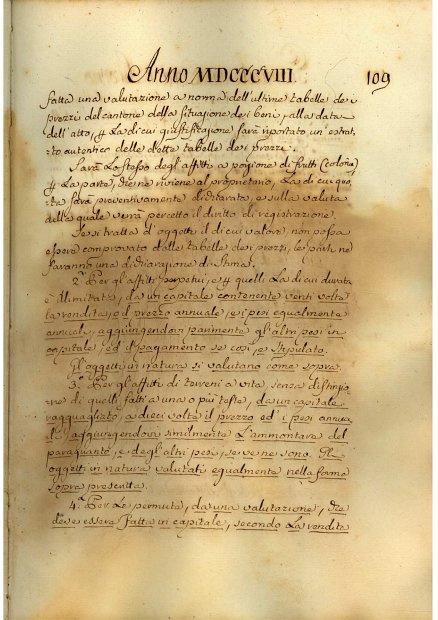 Anno MDCCCVIII. 109
fatta una valutazione a norma dell'ultime tabelle dei
prezzi del cantone della situazione dei beni, alla data
dell'atto, p la di cui giustificazione sarà riportato un estrat
to autentico delle dette tabelle dei prezzi.
Sarà lo stesso degli affitti a porzione di frutti (colonia)
p la parte, che ne riviene al proprietario, la di cui quo
ta sarà preventivamente dichiarata, e sulla valuta
della quale verrà percetto il diritto di registrazione.
Se si tratta d'oggetti il di cui valore non possa
essere comprovato dalle tabelle dei prezzi, le parti ne
faranno una dichiarazione di stima.
2.° Per gli affitti perpetui, e p quelli la di cui durata
è illimitata, da un capitale contenente venti volte
la rendita, o il prezzo annuale, e i pesi egualmente
annuali, aggiungendovi parimente gli altri pesi in
capitale, ed il pagamento se così, è stipulato.
Gli oggetti in natura si valutano come sopra.
3.° Per gli affitti di terreni a vita, senza distinzio
ne di quelli fatti a una o più teste, da un capitale
ragguagliato, a dieci volte il prezzo ed i pesi annua
li aggiungendovi similmente l'ammontare del
paraguanto, e degli altri pesi, se ve ne sono. Gli
oggetti in natura valutati egualmente nella forma
sopra prescritta.
4.° Per le permute, da una valutazione, che
deve essere fatta in capitale, secondo la rendita